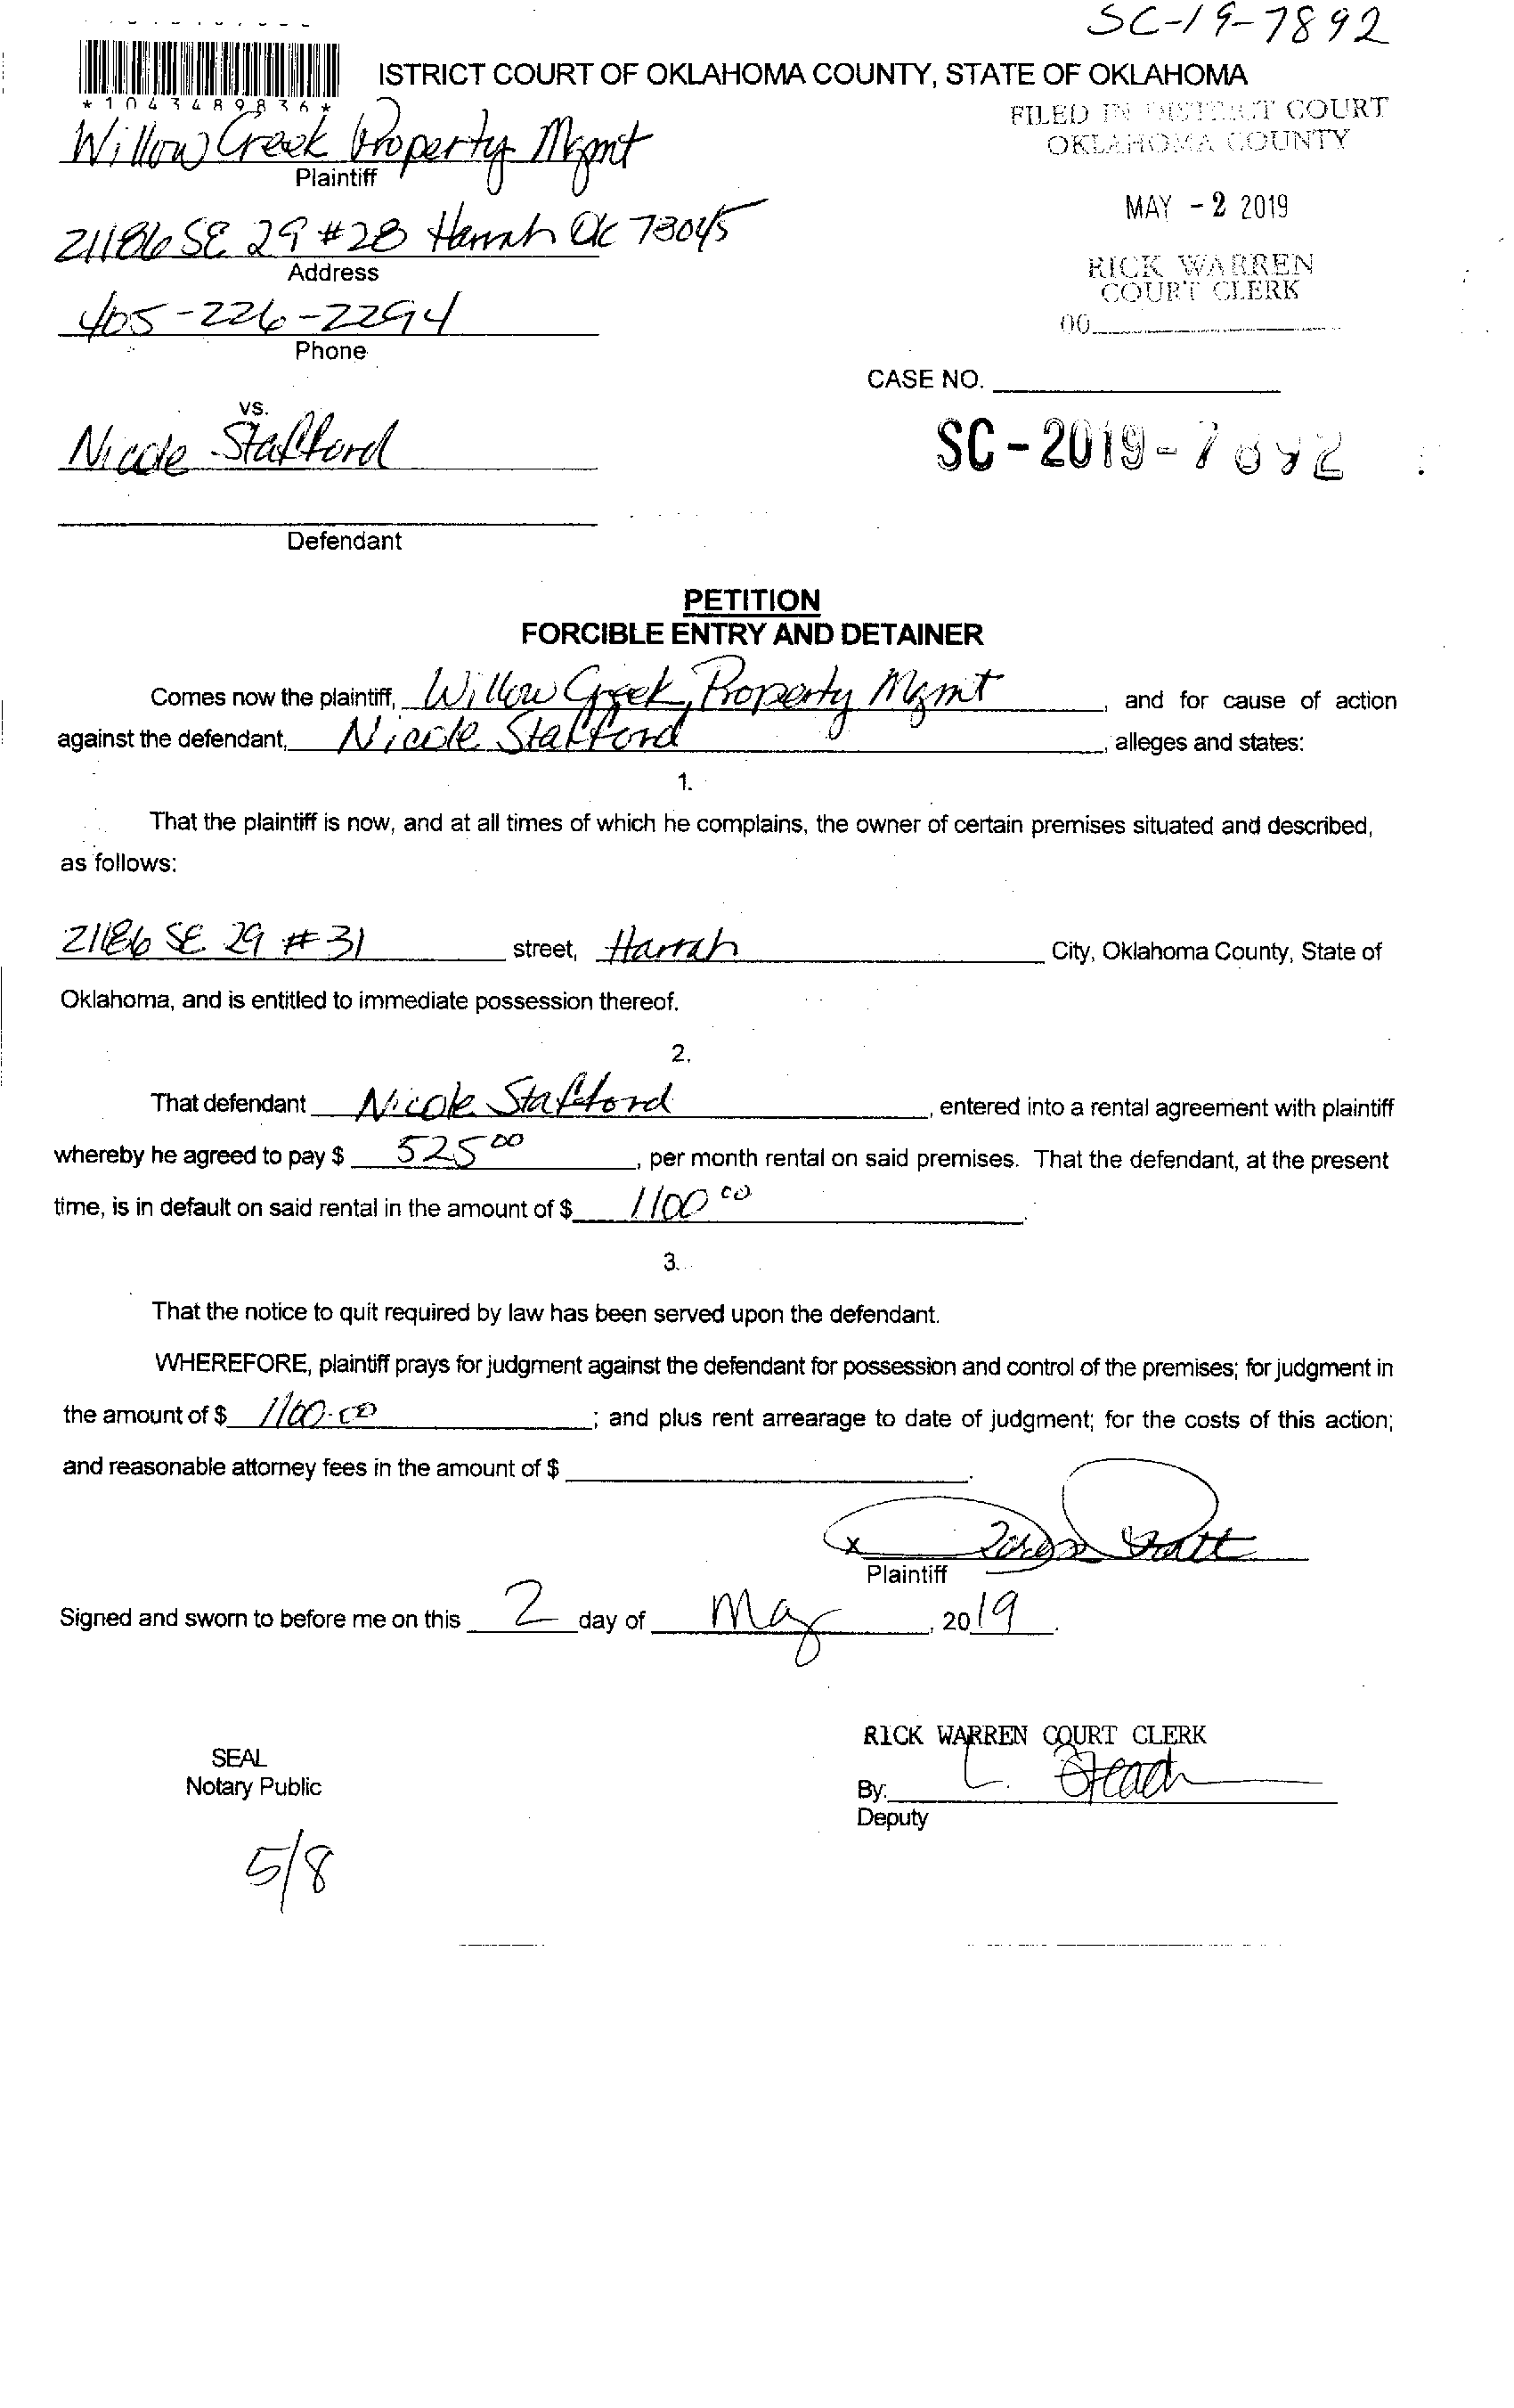 SC-19-7892
ISTRICT COURT OF OKLAHOMA COUNTY, STATE OF OKLAHOMA
*1043489836*
FILED IN DISTRICT COURT
OKLAHOMA COUNTY
Willow Creek Property Mgmt
Plaintiff
MAY - 2 2019
21186 SE 29 #28 Harrah OK 73045
Address
RICK WARREN
COURT CLERK
405-226-2294
Phone
CASE NO.
vs.
Nicole Stafford
SC-2019-7892
Defendant
PETITION
FORCIBLE ENTRY AND DETAINER
Comes now the plaintiff, Willow Creek Property Mgmt, and for cause of action
against the defendant, Nicole Stafford, alleges and states:
1.
That the plaintiff is now, and at all times of which he complains, the owner of certain premises situated and described,
as follows:
21186 SE 29 #31 street, Harrah City, Oklahoma County, State of
Oklahoma, and is entitled to immediate possession thereof.
2.
That defendant Nicole Stafford, entered into a rental agreement with plaintiff
whereby he agreed to pay $ 525 00, per month rental on said premises. That the defendant, at the present
time, is in default on said rental in the amount of $ 1100 00.
3.
That the notice to quit required by law has been served upon the defendant.
WHEREFORE, plaintiff prays for judgment against the defendant for possession and control of the premises; for judgment in
the amount of $ 1100.00; and plus rent arrearage to date of judgment; for the costs of this action;
and reasonable attorney fees in the amount of $.
x
Plaintiff
Signed and sworn to before me on this 2 day of May, 2019.
RICK WARREN COURT CLERK
SEAL
Notary Public
By:
Deputy
5/8